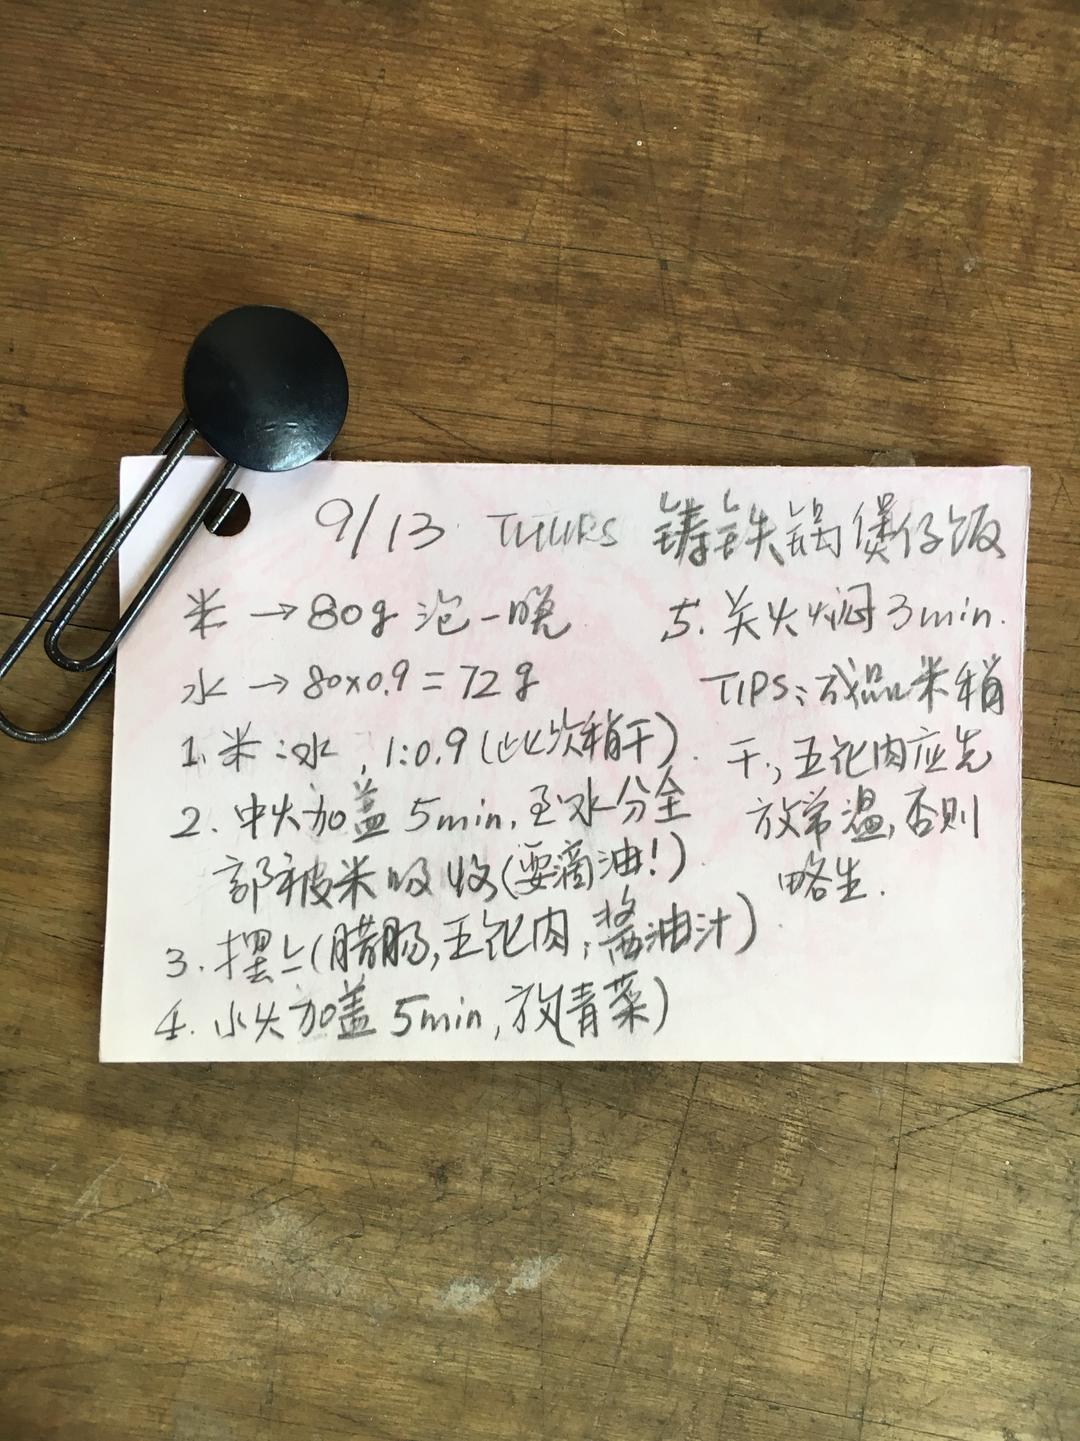 9/13 THURS 铸铁锅煲仔饭
米 → 80g 泡一晚
水 → 80×0.9 = 72g
1. 米:水, 1:0.9 (此次稍干)
2. 中火加盖 5min, 至水分全
部被米吸收(要滴油!)
3. 摆上(腊肠, 五花肉, 酱油汁)
4. 小火加盖 5min, 放(青菜)
5. 关火焖 3min.
TIPS: 成品米稍
干, 五花肉应先
放常温, 否则
略生.